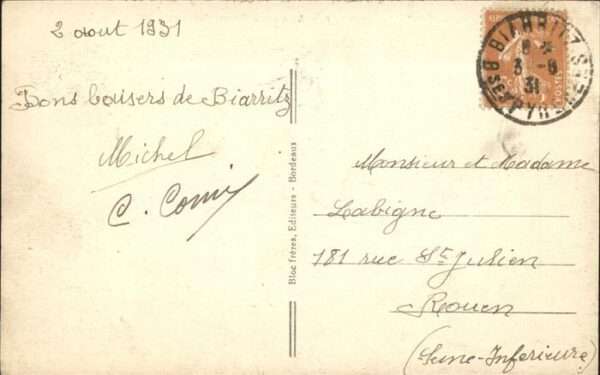 2 août 1931
Bons baisers de Biarritz
Michel
C.
Bloc frères, Editeurs - Bordeaux
BIARRITZ
3 - 8
31
Bses PYRENEES
Monsieur et Madame
Labigne
181 rue St Julien
Rouen
(Seine-Inférieure)